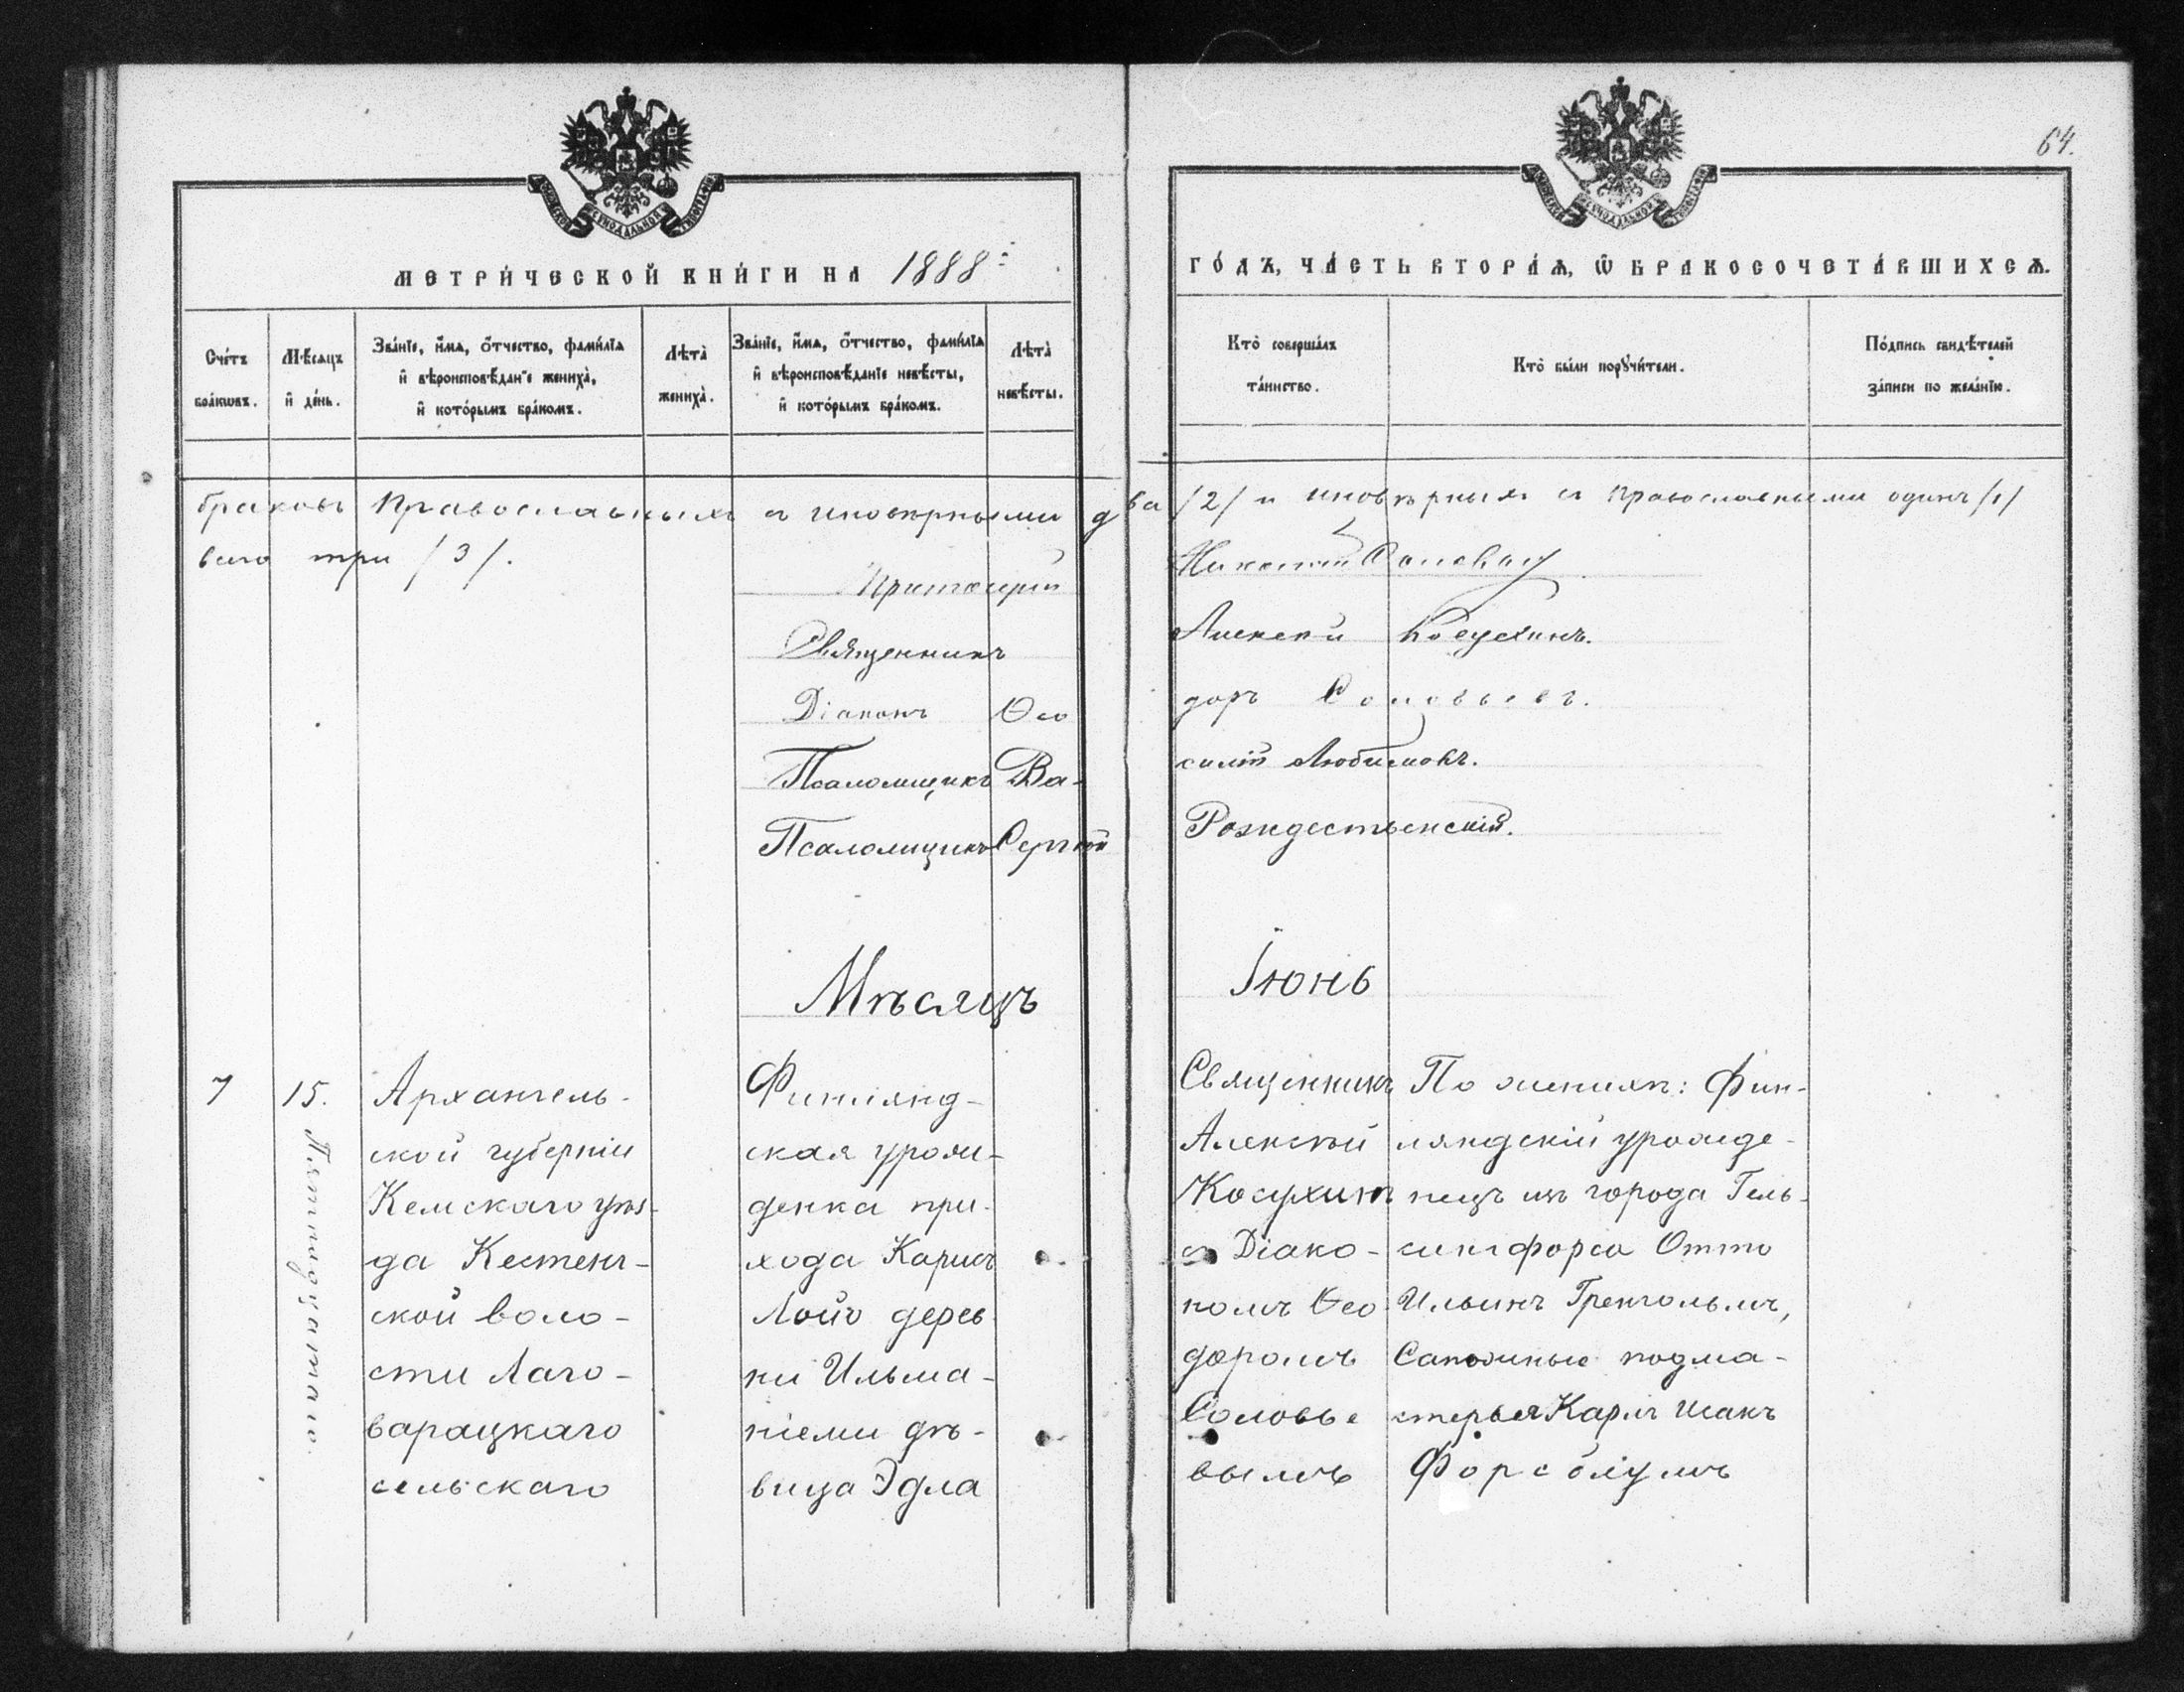 64.
МЕТРИ́ЧЕСКОЙ КНИ́ГИ НА 1888
ГО́ДЪ, ЧА́СТЬ ВТОРА́Ѧ, Ѡ БРАКОСОЧЕТА́ВШИХСѦ.
Сче́тъ бра́кѡвъ.
Мѣ́сяцъ и҆ де́нь.
Зва́нїе, и҆́мя, ѻ҆́тчество, фами́лїя
и҆ вѣроисповѣ́данїе жениха̀,
и҆ кото́рымъ бра́комъ.
Лѣта̀ жениха̀.
Зва́нїе, и҆́мя, ѻ҆́тчество, фами́лїя
и҆ вѣроисповѣ́данїе невѣ́сты,
и҆ кото́рымъ бра́комъ.
Лѣта̀ невѣ́сты.
Кто̀ соверша́лъ
та́инство.
Кто̀ бы́ли порꙋчи́тели.
По́дпись свидѣ́телей
за́писи по жела́нїю.
браковъ православныхъ съ иновѣрными два /2/ и иновѣрныхъ съ православными одинъ /1/
всего три /3/.
Протоіерей Николай Поповъ
Священникъ Алексѣй Косухинъ.
Діаконъ Ѳеодоръ Соловьевъ.
Псаломщикъ Василій Любимовъ.
Псаломщикъ Сергѣй Рождественскій.
Мѣсяцъ Іюнь
7
15.
Пятнадцатаго.
Архангель-
ской губерніи
Кемскаго уѣз-
да Кестенг-
ской воло-
сти Лаго-
варацкаго
сельскаго
Финлянд-
ская урож-
денка при-
хода Карисъ
Лойо дерев
ни Ильма-
ніеми дѣ-
вица Эдла
Священникъ
Алексѣй
Косухинъ
съ Діако-
номъ Ѳео
доромъ
Соловье
вымъ
По женихѣ: Фин-
ляндскій урожде-
нецъ изъ города Гель-
сингфорса Отто
Ильинъ Гренгольмъ,
Сапожные подма-
стерья Карлъ Исакъ
Форсблумъ